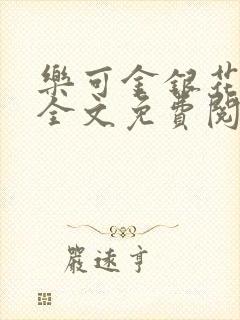 樂可金銀花
全文免費閱
嚴遠亨